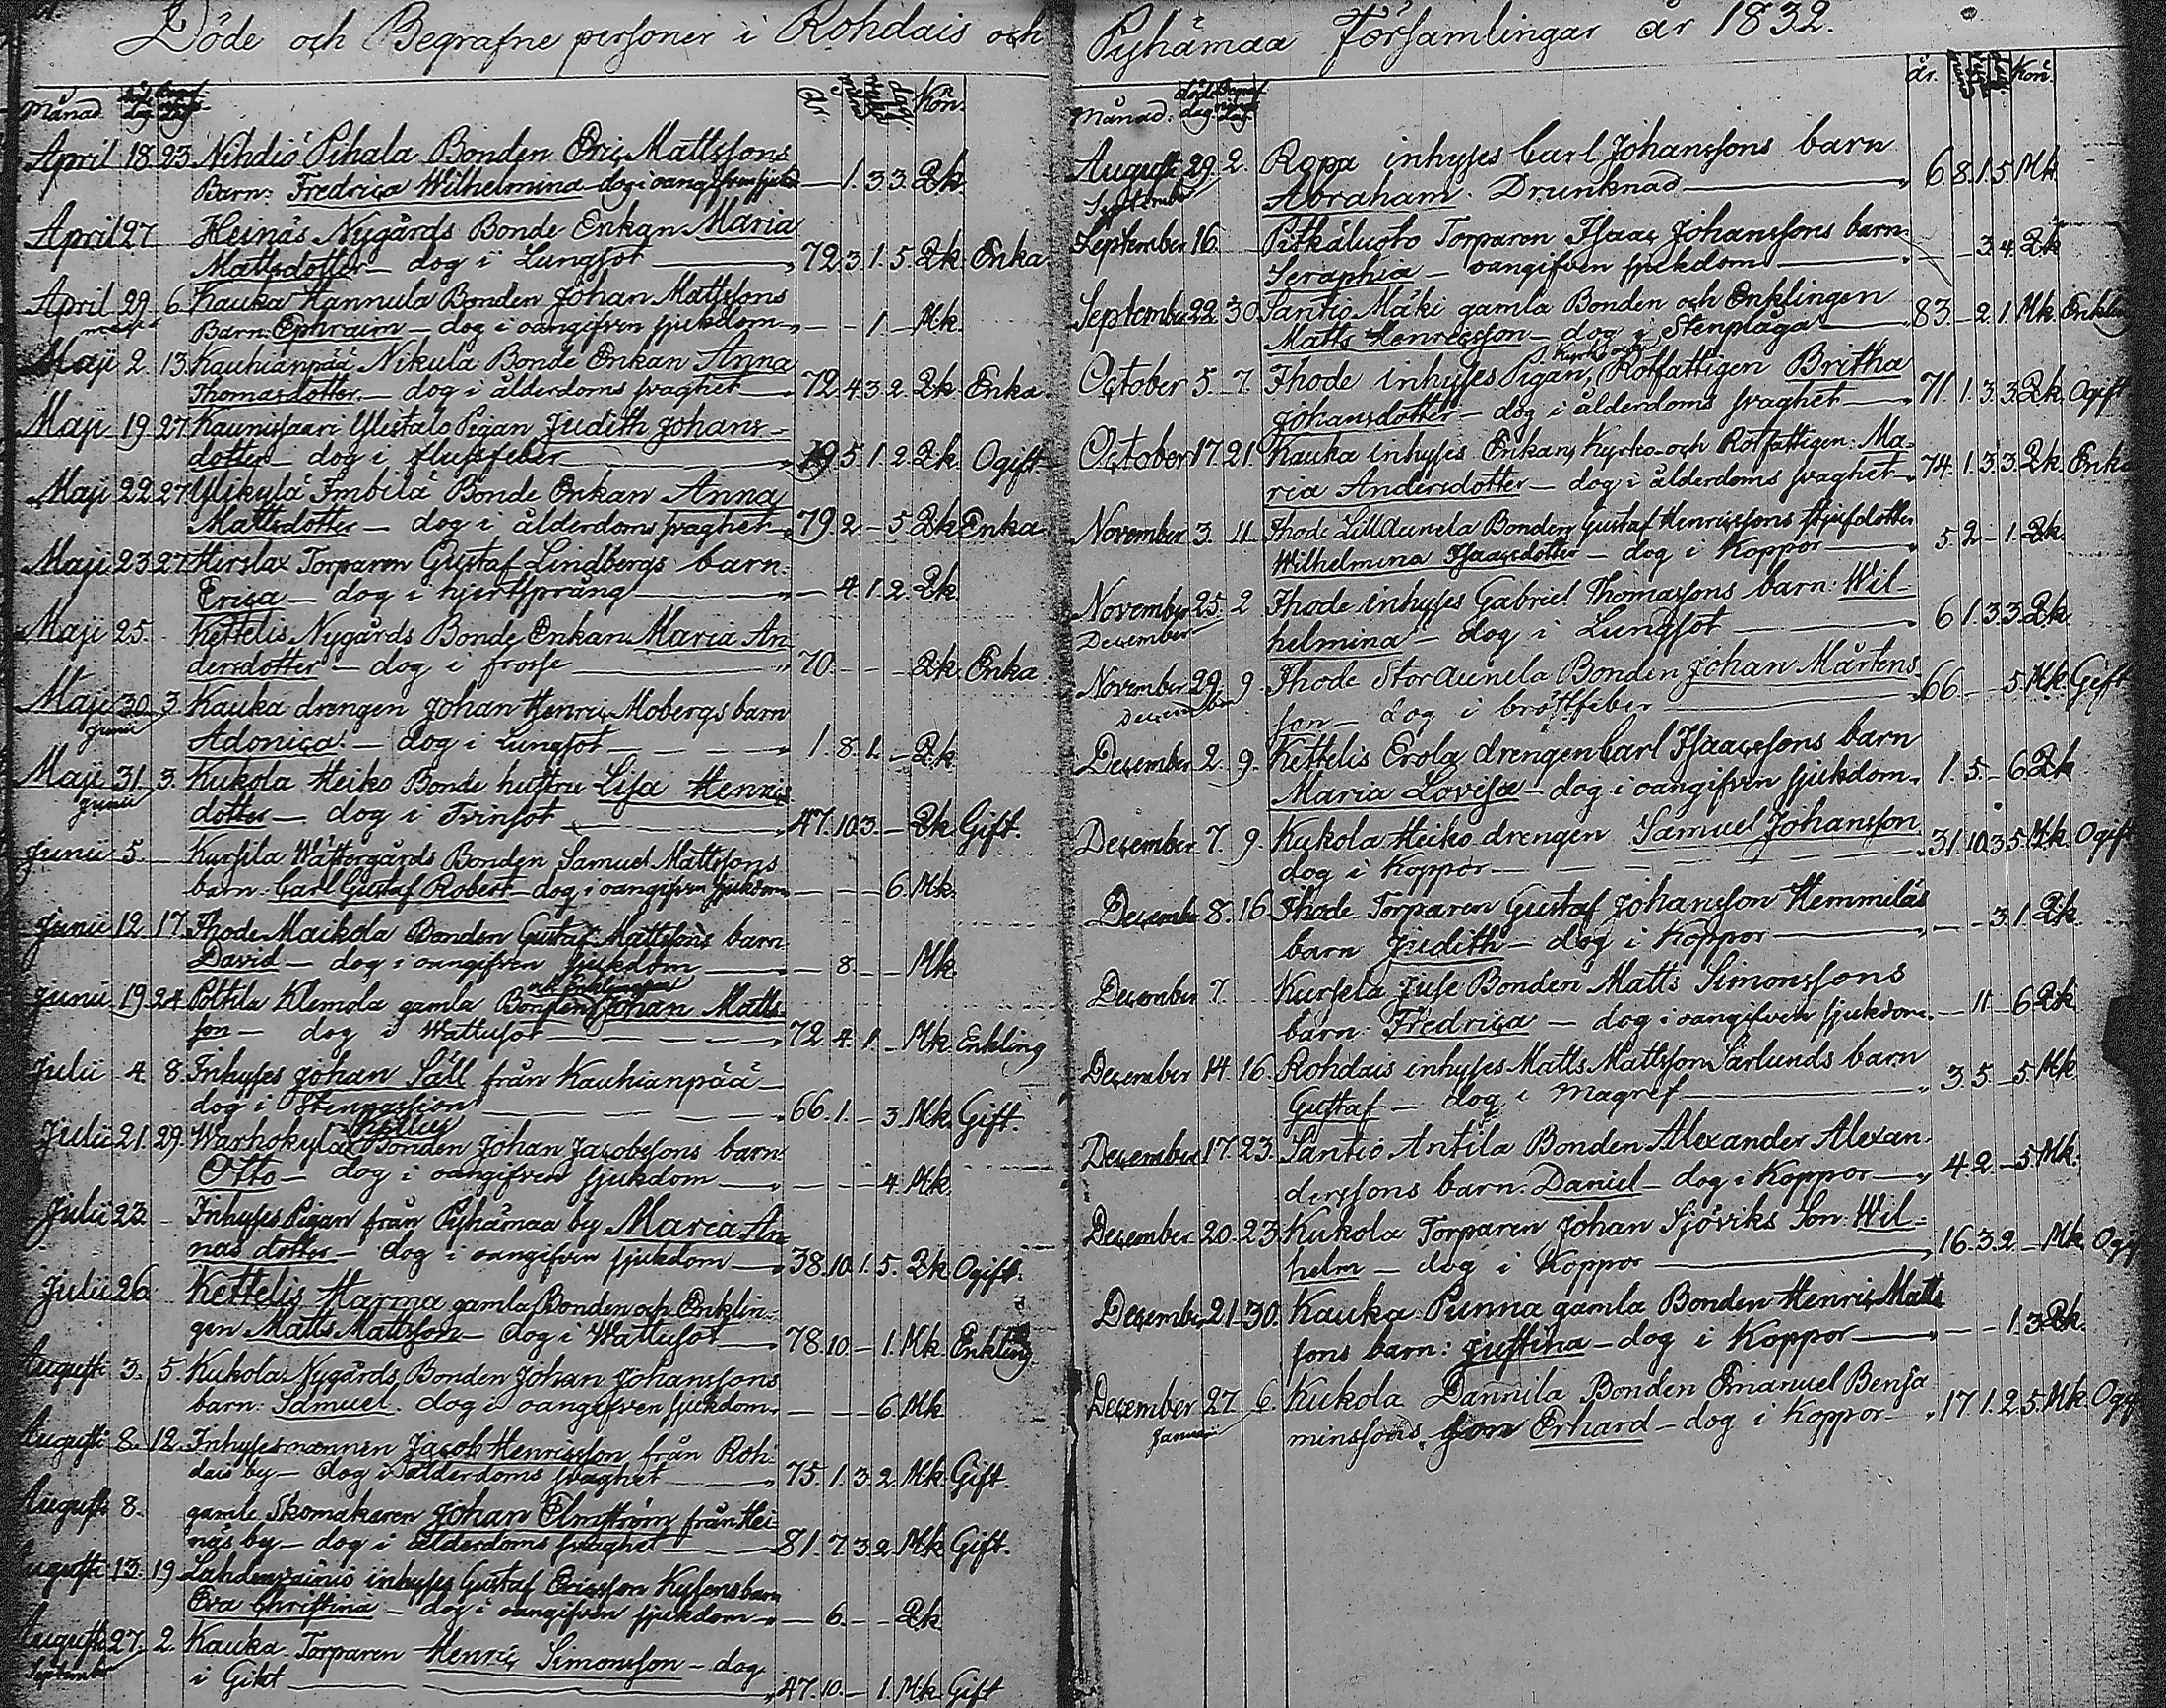 Döde och Begrafne personer i Rohdais och
Månad döde dag Begrafnings dag år. mån. vek. dag. Kön.
April 18 23 Nihdiö Pihala Bonden Eric Mattssons
Barn: Fredrica Wilhelmina dog i oangifven sjukd — 1. 3. 3. Qk.
April 27 Heinäs Nygårds Bonde Enkan Maria
Mattsdotter — dog i Lungsot — 72. 3. 1. 5. Qk. Enka
April 29 6 Kauka Hannula Bonden Johan Mattssons
maji Barn: Ephraim — dog i oangifven sjukdom — — 1 — Mk.
Maji 2. 13. Kauhianpää Nikula Bonde Enkan Anna
Thomasdotter. — dog i ålderdoms svaghet — 72. 4. 3. 2. Qk. Enka.
Maji 19 27 Kaunissaari Ylistalo Pigan Judith Johans-
dotter — dog i flussfeber — 19. 5. 1. 2. Qk. Ogift
Maji 22 27 Ylikylä Imbilä Bonde Enkan Anna
Mattsdotter — dog i ålderdoms svaghet — 79. 2. — 5. Qk Enka
Maji 23 27 Hirslax Torparen Gustaf Lindbergs barn:
Erica — dog i hjertsprång — — 4. 1. 2. Qk.
Maji 25. Kettelis Nygårds Bonde Enkan Maria An
dersdotter — dog i frosse — 70. — — Qk. Enka.
Maji 30. 3. Kauka drengen Johan Henric Mobergs barn
Junii Adonica. — dog i Lungsot — 1. 8. 1. — Qk.
Maji 31. 3. Kukola Heiko Bonde hustru Lisa Henrics
Junii dotter — dog i Tvinsot — 47. 10. 3. — Qk Gift.
Junii 5. Kursila Wästergårds Bonden Samuel Mattssons
barn: Carl Gustaf Robert — dog i oangifven sjukdom — — — 6. Mk.
Junii 12 17. Ihode Maikola Bonden Gustaf Mattssons barn
David — dog i oangifven sjukdom — — 8. — — Mk
Junii 19 24 Poltila Klemola gamla Bonden och Enklingen Johan Matts-
son — dog i Wattusot — 72. 4. 1. — Mk Enkling
Julii 4. 8. Inhyses Johan Säll från Kauhianpää —
dog i Stenpassion — 66. 1. — 3. Mk. Gift.
Julii 21. 29. Warhokylä Bonden Johan Jacobssons barn
Otto — dog i oangifven sjukdom — — — — 4. Mk.
Julii 23. Inhyses Pigan från Pyhämaa by Maria An
nas dotter — dog i oangifven sjukdom — 38. 10. 1. 5. Qk Ogift.
Julii 26. Kettelis Harma gamla Bonden och Enklin-
gen Matts Mattsson — dog i Wattusot — 78. 10. — 1. Mk. Enkling
Augusti 3. 5. Kukola Nygårds Bonden Johan Johanssons
barn: Samuel. dog i oangifven sjukdom. — — — 6. Mk
Augusti 8. 12. Inhysesmannen Jacob Henricsson från Roh-
dais by — dog i ålderdoms svaghet — 75. 1. 3. 2. Mk Gift.
Augusti 8. gamle Skomakaren Johan Elmström från Hei-
näs by — dog i ålderdoms svaghet — 81. 7. 3. 2. Mk Gift.
Augusti 13. 19. inhyses Gustaf Ericsson barn
Eva Christina — dog i oangifven sjukdom — — 6. — — Qk
Augusti 27. 2. Kauka Torparen Henric Simonsson — dog
September i Gikt — 47. 10. — 1. Mk. Gift
Pyhämaa Församlingar år 1832.
Månad. döde dag. Begrafnings dag. år. Kön.
Augusti 29. 2. Ropa inhyses Carl Johanssons barn
September Abraham. Drunknad — 6. 8. 1. 5. Mk.
September 16. Pitkäluoto Torparen Isaac Johanssons barn:
Seraphia — oangifven sjukdom — — — 3. 4. Qk
September 22. 30. Santio Mäki gamla Bonden och Enklingen
Matts Henricsson — dog i Stenplåga — 83. — 2. 1. Mk. Enkling
October 5. 7. Ihode inhyses Pigan, Kyrko och Rotfattigen Britha
Johansdotter — dog i ålderdoms svaghet — 71. 1. 3. 3. Qk. Ogift
October 17. 21. Kauka inhyses Enkan, Kyrko och Rotfattigen: Ma-
ria Andersdotter — dog i ålderdoms svaghet — 74. 1. 3. 3. Qk. Enka
November 3. 11. Ihode Lill Aunela Bonden Gustaf Henricssons stjufdotter
Wilhelmina Isaacsdotter — dog i Koppor — 5. 2 — 1. Qk.
November 25. 2 Ihode inhyses Gabriel Thomassons barn: Wil-
December helmina — dog i Lungsot — 6. 1. 3. 3. Qk.
November 29. 9. Ihode Stor Aunela Bonden Johan Mårtens
December son — dog i bröstfeber — 66. — — 5. Mk. Gift
December 2. 9. Kettelis Erola drengen Carl Isaacssons barn
Maria Lovisa — dog i oangifven sjukdom. 1. 5. — 6. Qk
December 7. 9. Kukola Heiko drengen Samuel Johansson
dog i Koppor — 31. 10. 3. 5. Mk. Ogift
December 8. 16. Ihode Torparen Gustaf Johansson Hemmiläs
barn Judith — dog i Koppor — — — 3. 1. Qk.
December 7. Kursela Juse Bonden Matts Simonssons
barn: Fredrica — dog i oangifven sjukdom. — 11 — 6. Qk
December 14. 16. Rohdais inhyses Matts Mattsson Särlunds barn
Gustaf — dog i Magref — 3. 5. — 5. Mk
December 17. 23. Santio Antila Bonden Alexander Alexan-
derssons barn: Daniel — dog i Koppor — 4. 2. — 5. Mk.
December 20. 23. Kukola Torparen Johan Sjöviks Son: Wil-
helm — dog i Koppor — 16. 3. 2. — Mk. Ogift
December 21. 30. Kauka Punna gamla Bonden Henric Matts
sons barn: Justina — dog i Koppor — — — 1. 3. Qk.
December 27 6. Kukola Dannila Bonden Emanuel Benja
Januarii minssons son Erhard — dog i Koppor — 17. 1. 2. 5. Mk. Ogift